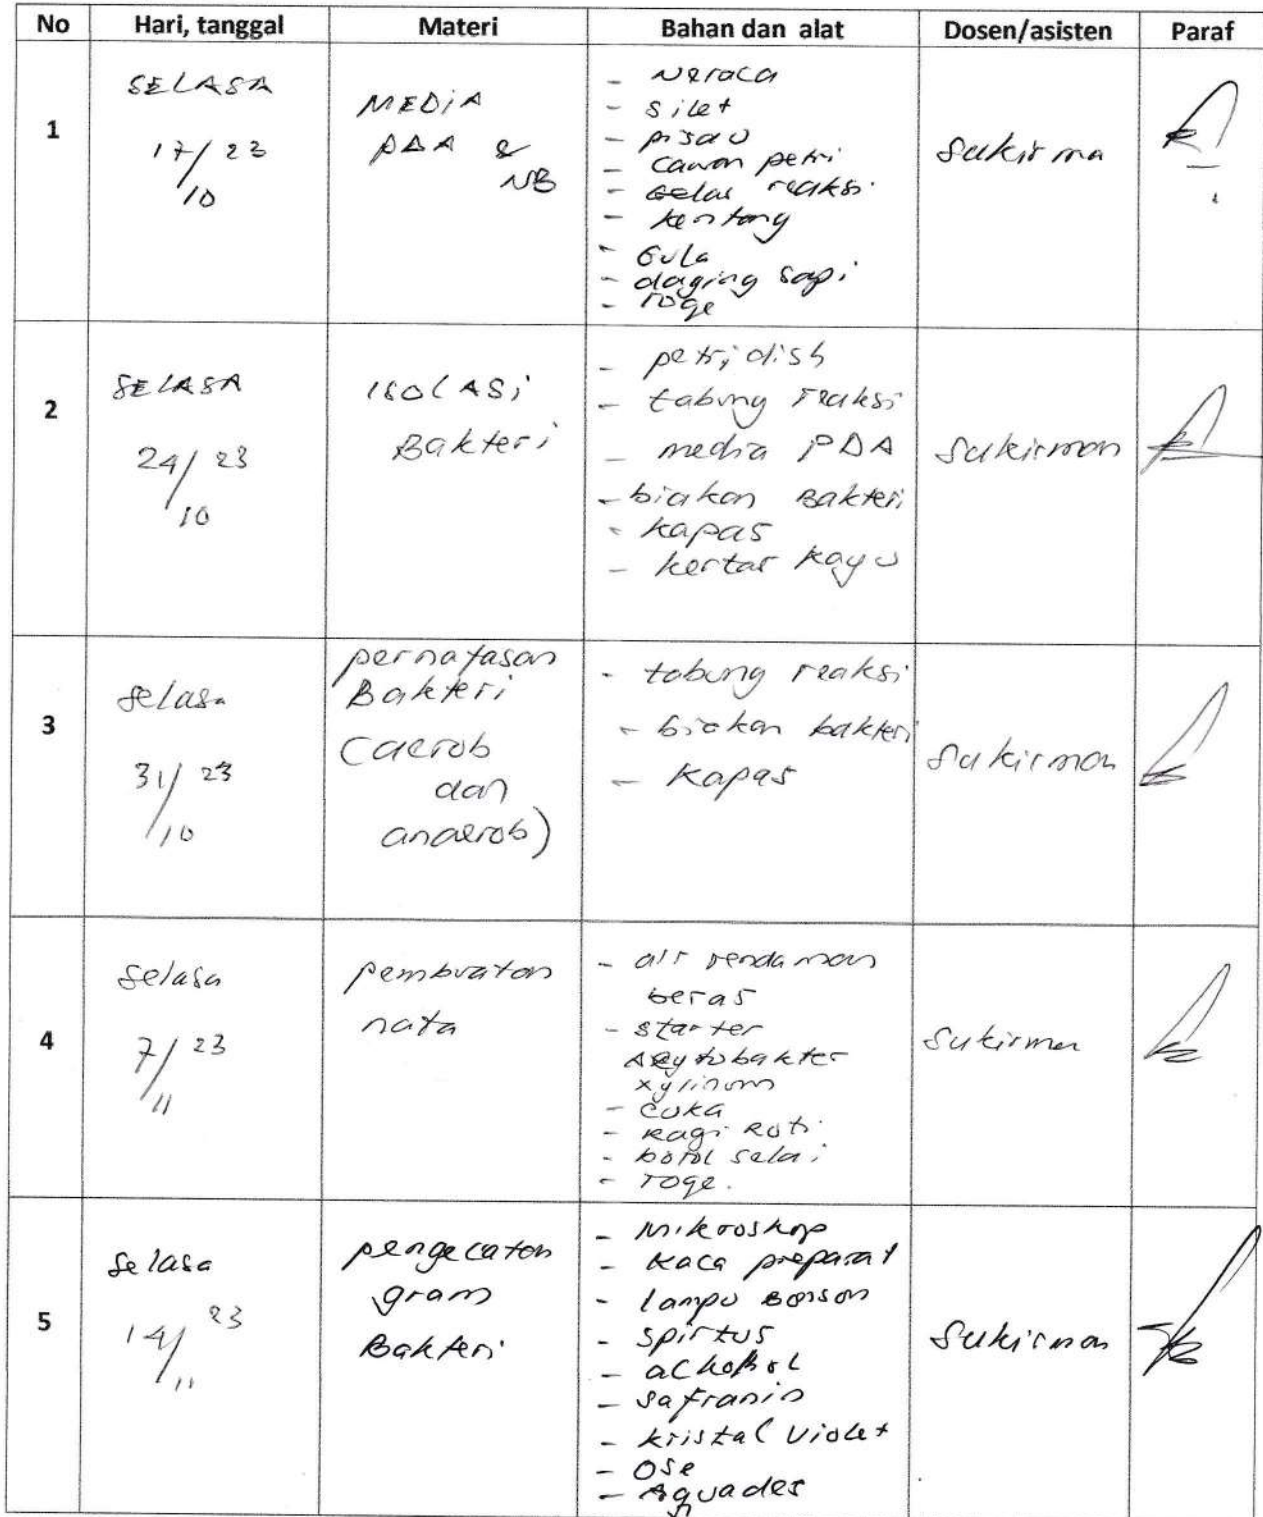 No Hari, tanggal Materi Bahan dan alat Dosen/asisten Paraf
1
SELASA
17/10 23
MEDIA
PDA &
NB
- Neraca
- silet
- pisau
- cawan petri
- Gelas reaksi
- kentang
- Gula
- daging sapi
- Toge
Sukirma
2
SELASA
24/10 23
ISOLASI
Bakteri
- petridish
- tabung reaksi
- media PDA
- biakan Bakteri
- kapas
- kertas kayu
Sukirman
3
selasa
31/10 23
pernafasan
Bakteri
(aerob
dan
anaerob)
- tabung reaksi
- biakan bakteri
- kapas
Sukirman
4
selasa
7/11 23
pembuatan
nata
- air rendaman
beras
- starter
xylinum
- cuka
- Ragi Roti
- botol selai
- Toge.
Sukirman
5
selasa
14/11 23
pengecatan
gram
Bakteri
- Mikroskop
- kaca preparat
- lampu
- spirtus
- safranin
- kristal violet
- Ose
- Aquades
Sukirman